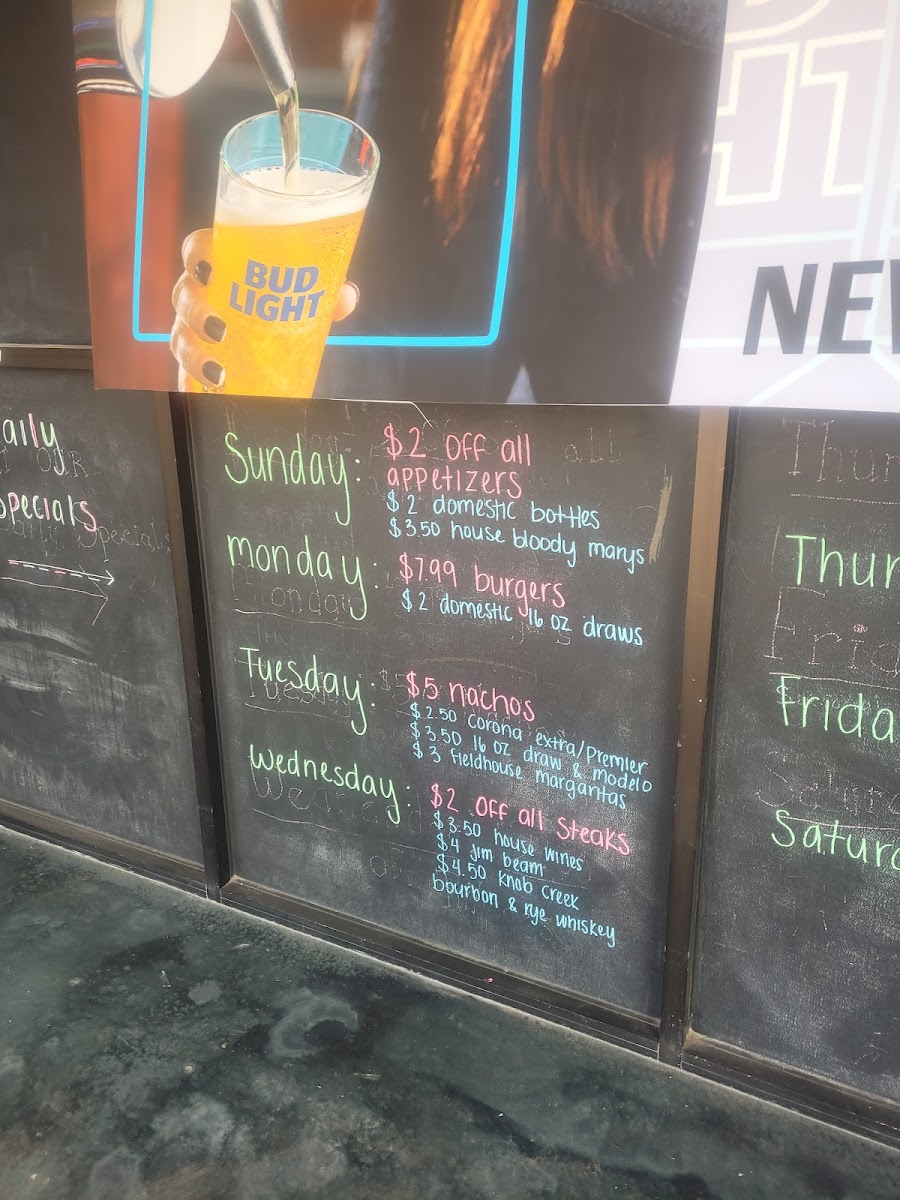 BUD
LIGHT
HT
NEW
aily
specials
Sunday: $2 off all
appetizers
$2 domestic bottles
$3.50 house bloody marys
monday: $7.99 burgers
$2 domestic 16 oz draws
Tuesday: $5 nachos
$2.50 corona extra/premier
$3.50 16 oz draw & modelo
$3 fieldhouse margaritas
wednesday: $2 off all steaks
$3.50 house wines
$4 jim beam
$4.50 Knob creek
bourbon & rye whiskey
Thur
Frida
Satur